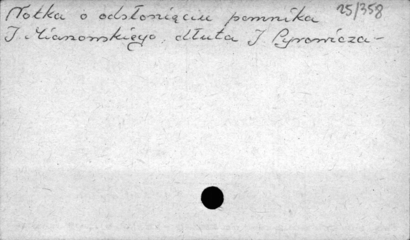 Notka o odsłonięciu pomnika 25/358
J. Mianowskięgo, dłuta J Pyrowicza -